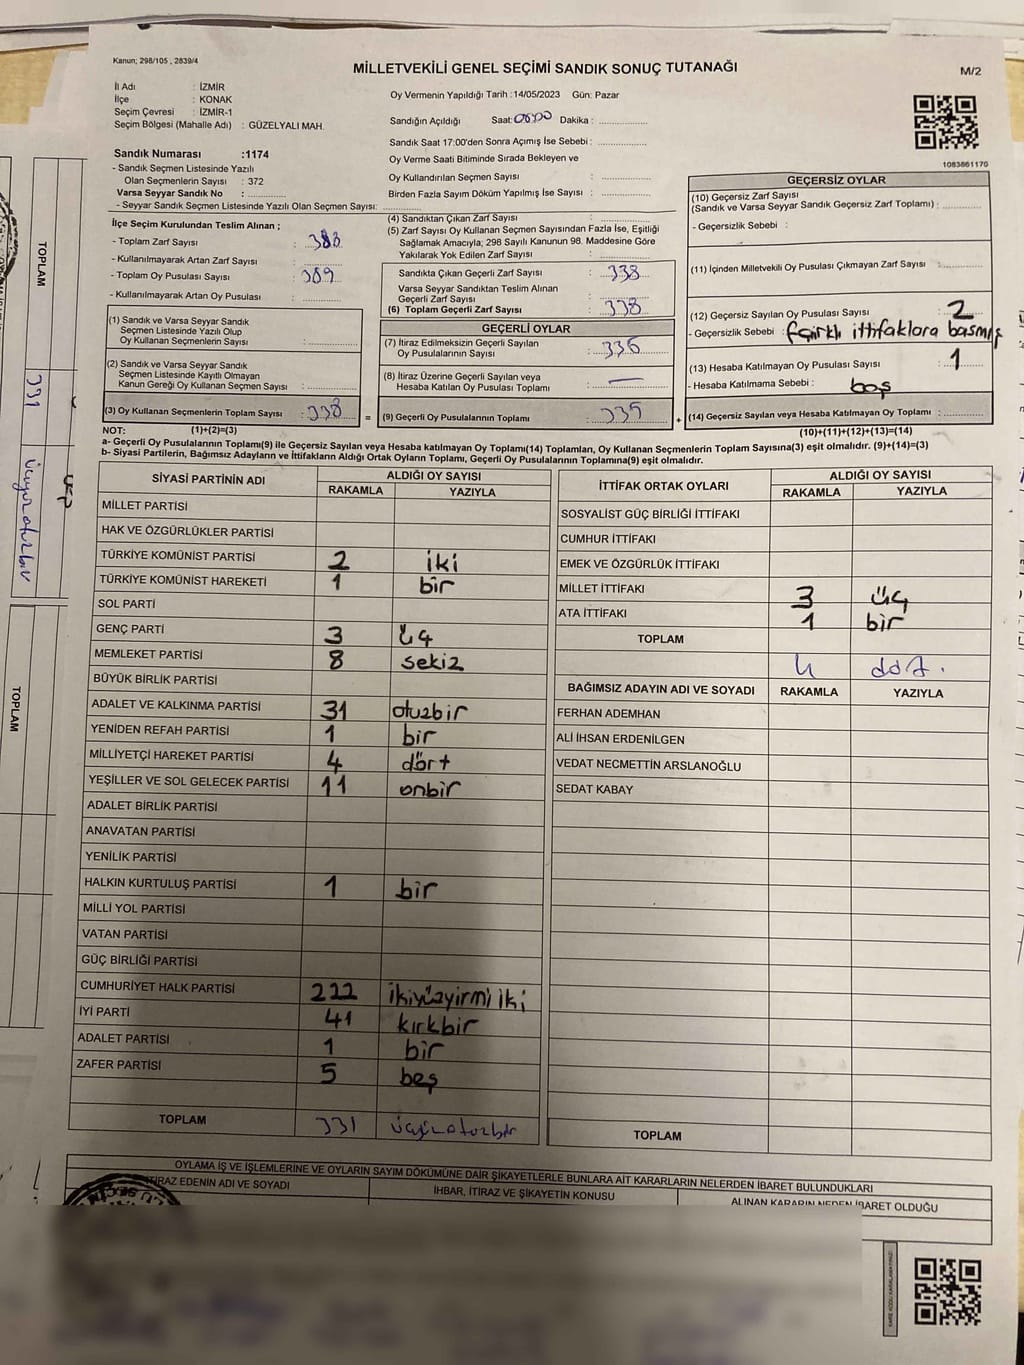 Kanun; 298/105 , 2839/4
MİLLETVEKİLİ GENEL SEÇİMİ SANDIK SONUÇ TUTANAĞI
M/2
İl Adı : İZMİR
İlçe : KONAK
Seçim Çevresi : İZMİR-1
Seçim Bölgesi (Mahalle Adı) : GÜZELYALI MAH.
Oy Vermenin Yapıldığı Tarih :14/05/2023 Gün: Pazar
Sandığın Açıldığı Saat: Dakika :
Sandık Saat 17:00'den Sonra Açımış İse Sebebi :
Oy Verme Saati Bitiminde Sırada Bekleyen ve
Oy Kullandırılan Seçmen Sayısı :
Birden Fazla Sayım Döküm Yapılmış İse Sayısı :
1083861170
Sandık Numarası :1174
- Sandık Seçmen Listesinde Yazılı
Olan Seçmenlerin Sayısı : 372
Varsa Seyyar Sandık No :
- Seyyar Sandık Seçmen Listesinde Yazılı Olan Seçmen Sayısı:
İlçe Seçim Kurulundan Teslim Alınan ;
- Toplam Zarf Sayısı : 388
- Kullanılmayarak Artan Zarf Sayısı :
- Toplam Oy Pusulası Sayısı : 389
- Kullanılmayarak Artan Oy Pusulası :
(1) Sandık ve Varsa Seyyar Sandık
Seçmen Listesinde Yazılı Olup
Oy Kullanan Seçmenlerin Sayısı :
(2) Sandık ve Varsa Seyyar Sandık
Seçmen Listesinde Kayıtlı Olmayan
Kanun Gereği Oy Kullanan Seçmen Sayısı :
(3) Oy Kullanan Seçmenlerin Toplam Sayısı : 338
(4) Sandıktan Çıkan Zarf Sayısı :
(5) Zarf Sayısı Oy Kullanan Seçmen Sayısından Fazla İse, Eşitliği
Sağlamak Amacıyla; 298 Sayılı Kanunun 98. Maddesine Göre
Yakılarak Yok Edilen Zarf Sayısı :
Sandıkta Çıkan Geçerli Zarf Sayısı : 338
Varsa Seyyar Sandıktan Teslim Alınan
Geçerli Zarf Sayısı :
(6) Toplam Geçerli Zarf Sayısı : 338
GEÇERLİ OYLAR
(7) İtiraz Edilmeksizin Geçerli Sayılan
Oy Pusulalarının Sayısı : 335
(8) İtiraz Üzerine Geçerli Sayılan veya
Hesaba Katılan Oy Pusulası Toplamı : —
= (9) Geçerli Oy Pusulalarının Toplamı : 335
GEÇERSİZ OYLAR
(10) Geçersiz Zarf Sayısı
(Sandık ve Varsa Seyyar Sandık Geçersiz Zarf Toplamı) :
- Geçersizlik Sebebi :
(11) İçinden Milletvekili Oy Pusulası Çıkmayan Zarf Sayısı :
(12) Geçersiz Sayılan Oy Pusulası Sayısı : 2
- Geçersizlik Sebebi : farklı ittifaklara basmış
(13) Hesaba Katılmayan Oy Pusulası Sayısı : 1
- Hesaba Katılmama Sebebi : boş
+ (14) Geçersiz Sayılan veya Hesaba Katılmayan Oy Toplamı :
NOT: (1)+(2)=(3)
(10)+(11)+(12)+(13)=(14)
a- Geçerli Oy Pusulalarının Toplamı(9) ile Geçersiz Sayılan veya Hesaba katılmayan Oy Toplamı(14) Toplamları, Oy Kullanan Seçmenlerin Toplam Sayısına(3) eşit olmalıdır. (9)+(14)=(3)
b- Siyasi Partilerin, Bağımsız Adayların ve İttifakların Aldığı Ortak Oyların Toplamı, Geçerli Oy Pusulalarının Toplamına(9) eşit olmalıdır.
SİYASİ PARTİNİN ADI ALDIĞI OY SAYISI
RAKAMLA YAZIYLA
MİLLET PARTİSİ
HAK VE ÖZGÜRLÜKLER PARTİSİ
TÜRKİYE KOMÜNİST PARTİSİ 2 iki
TÜRKİYE KOMÜNİST HAREKETİ 1 bir
SOL PARTİ
GENÇ PARTİ 3 üç
MEMLEKET PARTİSİ 8 sekiz
BÜYÜK BİRLİK PARTİSİ
ADALET VE KALKINMA PARTİSİ 31 otuzbir
YENİDEN REFAH PARTİSİ 1 bir
MİLLİYETÇİ HAREKET PARTİSİ 4 dört
YEŞİLLER VE SOL GELECEK PARTİSİ 11 onbir
ADALET BİRLİK PARTİSİ
ANAVATAN PARTİSİ
YENİLİK PARTİSİ
HALKIN KURTULUŞ PARTİSİ 1 bir
MİLLİ YOL PARTİSİ
VATAN PARTİSİ
GÜÇ BİRLİĞİ PARTİSİ
CUMHURİYET HALK PARTİSİ 222 ikiyüzyirmi iki
İYİ PARTİ 41 kırkbir
ADALET PARTİSİ 1 bir
ZAFER PARTİSİ 5 beş
TOPLAM 331 üçyüzotuzbir
İTTİFAK ORTAK OYLARI ALDIĞI OY SAYISI
RAKAMLA YAZIYLA
SOSYALİST GÜÇ BİRLİĞİ İTTİFAKI
CUMHUR İTTİFAKI
EMEK VE ÖZGÜRLÜK İTTİFAKI
MİLLET İTTİFAKI 3 üç
ATA İTTİFAKI 1 bir
TOPLAM
4 dört.
BAĞIMSIZ ADAYIN ADI VE SOYADI RAKAMLA YAZIYLA
FERHAN ADEMHAN
ALİ İHSAN ERDENİLGEN
VEDAT NECMETTİN ARSLANOĞLU
SEDAT KABAY
TOPLAM
OYLAMA İŞ VE İŞLEMLERİNE VE OYLARIN SAYIM DÖKÜMÜNE DAİR ŞİKAYETLERLE BUNLARA AİT KARARLARIN NELERDEN İBARET BULUNDUKLARI
İTİRAZ EDENİN ADI VE SOYADI
İHBAR, İTİRAZ VE ŞİKAYETİN KONUSU
ALINAN KARARIN NEDEN İBARET OLDUĞU
TOPLAM
331
üçyüzotuzbir
TOPLAM